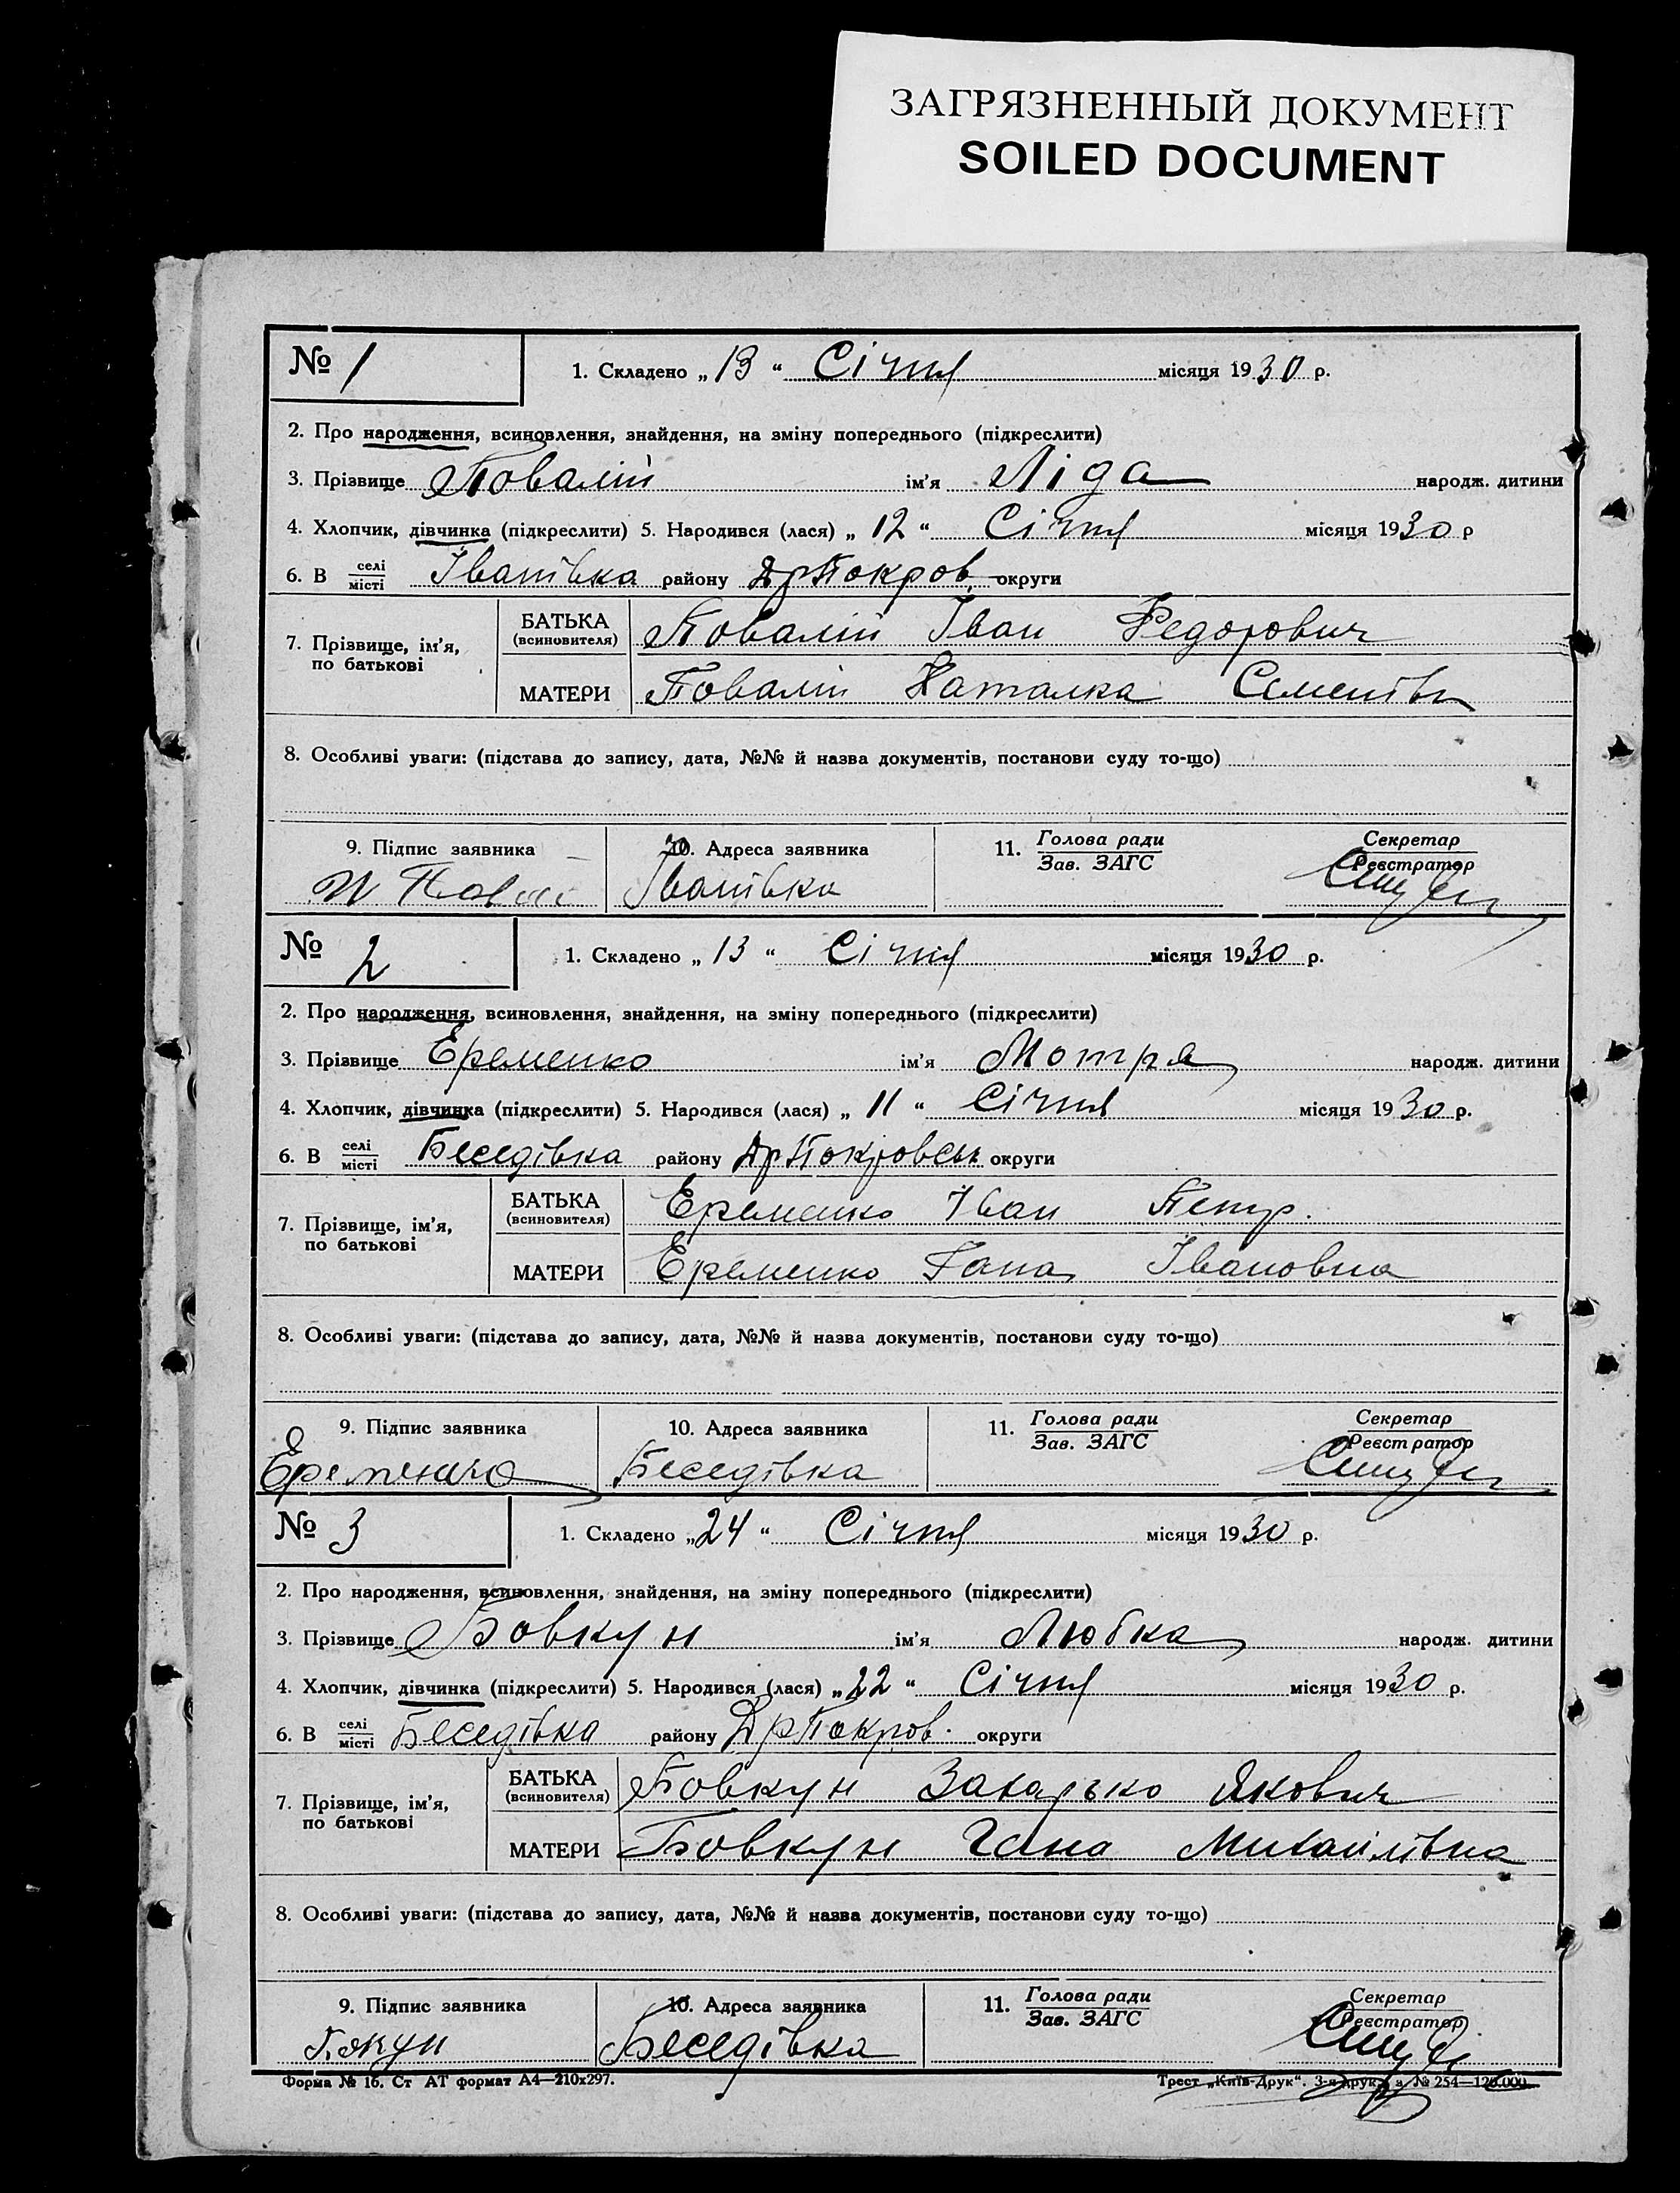 ЗАГРЯЗНЕННЫЙ ДОКУМЕНТ
SOILED DOCUMENT
№ 1
1. Складено „ 13 “ Січня місяця 1930 р.
2. Про народження, всиновлення, знайдення, на зміну попереднього (підкреслити)
3. Прізвище Повалій ім'я Ліда народж. дитини
4. Хлопчик, дівчинка (підкреслити) 5. Народився (лася) „ 12 “ Січня місяця 1930 р
6. В селі місті Іванівка району ДрПокров. округи
7. Прізвище, ім'я, по батькові
БАТЬКА (всиновителя) Повалій Іван Федорович
МАТЕРИ Повалій Наталка Семенівн
8. Особливі уваги: (підстава до запису, дата, №№ й назва документів, постанови суду то-що)
9. Підпис заявника 10. Адреса заявника 11. Голова ради Зав. ЗАГС Секретар Реєстратор
Іванівка
№ 2
1. Складено „ 13 “ Січня місяця 1930 р.
2. Про народження, всиновлення, знайдення, на зміну попереднього (підкреслити)
3. Прізвище Еременко ім'я Мотря народж. дитини
4. Хлопчик, дівчинка (підкреслити) 5. Народився (лася) „ 11 “ Січня місяця 1930 р.
6. В селі місті Беседівка району ДрПокровськ округи
7. Прізвище, ім'я, по батькові
БАТЬКА (всиновителя) Еременко Іван Петр.
МАТЕРИ Еременко Гана Івановна
8. Особливі уваги: (підстава до запису, дата, №№ й назва документів, постанови суду то-що)
9. Підпис заявника 10. Адреса заявника 11. Голова ради Зав. ЗАГС Секретар Реєстратор
Еременко Беседівка
№ 3
1. Складено „ 24 “ Січня місяця 1930 р.
2. Про народження, всиновлення, знайдення, на зміну попереднього (підкреслити)
3. Прізвище Бовкун ім'я Любка народж. дитини
4. Хлопчик, дівчинка (підкреслити) 5. Народився (лася) „ 22 “ Січня місяця 1930 р.
6. В селі місті Беседівка району ДрПокров. округи
7. Прізвище, ім'я, по батькові
БАТЬКА (всиновителя) Бовкун Захарько Якович
МАТЕРИ Бовкун Гана Михайлівна
8. Особливі уваги: (підстава до запису, дата, №№ й назва документів, постанови суду то-що)
9. Підпис заявника 10. Адреса заявника 11. Голова ради Зав. ЗАГС Секретар Реєстратор
Беседівка
Форма № 16. Ст АТ формат А4—210х297. Трест „Київ-Друк“. 3-я друк. з. № 254—120.000.